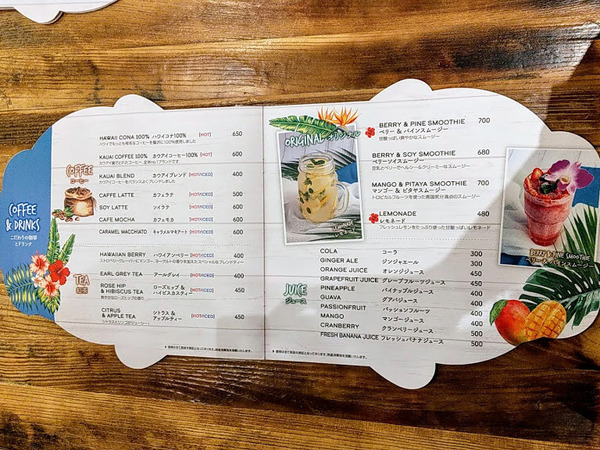 COFFEE
& DRINKS
こだわりの珈琲
とドリンク
COFFEE
コーヒー
HAWAII CONA 100% ハワイコナ100% [HOT] 650
KAUAI COFFEE 100% カウアイコーヒー100% [HOT] 600
KAUAI BLEND カウアイブレンド [HOT/ICED] 400
CAFFE LATTE カフェラテ [HOT/ICED] 500
SOY LATTE ソイラテ [HOT/ICED] 600
CAFE MOCHA カフェモカ [HOT/ICED] 600
CARAMEL MACCHIATO キャラメルマキアート [HOT/ICED] 600
TEA
紅茶
HAWAIIAN BERRY ハワイアンベリー [HOT/ICED] 400
EARL GREY TEA アールグレイ [HOT/ICED] 400
ROSE HIP
& HIBISCUS TEA
ローズヒップ &
ハイビスカスティー [HOT/ICED] 450
CITRUS
& APPLE TEA
シトラス &
アップルティー [HOT/ICED] 450
ORIGINAL オリジナル
LEMONADE
BERRY & PINE SMOOTHIE 700
ベリー & パインスムージー
甘酸っぱい爽やかなスムージー
BERRY & SOY SMOOTHIE 680
ベリーソイスムージー
豆乳とベリーでヘルシー&クリーミーなスムージー
MANGO & PITAYA SMOOTHIE 700
マンゴー & ピタヤスムージー
トロピカルフルーツを使った南国気分満点のスムージー
LEMONADE 480
レモネード
フレッシュレモンをたっぷり使った甘酸っぱいレモネード
BERRY & PINE SMOOTHIE
ベリー & パインスムージー
JUICE
ジュース
COLA コーラ 300
GINGER ALE ジンジャエール 300
ORANGE JUICE オレンジジュース 450
GRAPEFRUIT JUICE グレープフルーツジュース 450
PINEAPPLE パイナップルジュース 400
GUAVA グアバジュース 400
PASSIONFRUIT パッションフルーツ 400
MANGO マンゴージュース 400
CRANBERRY クランベリージュース 400
FRESH BANANA JUICE フレッシュバナナジュース 500